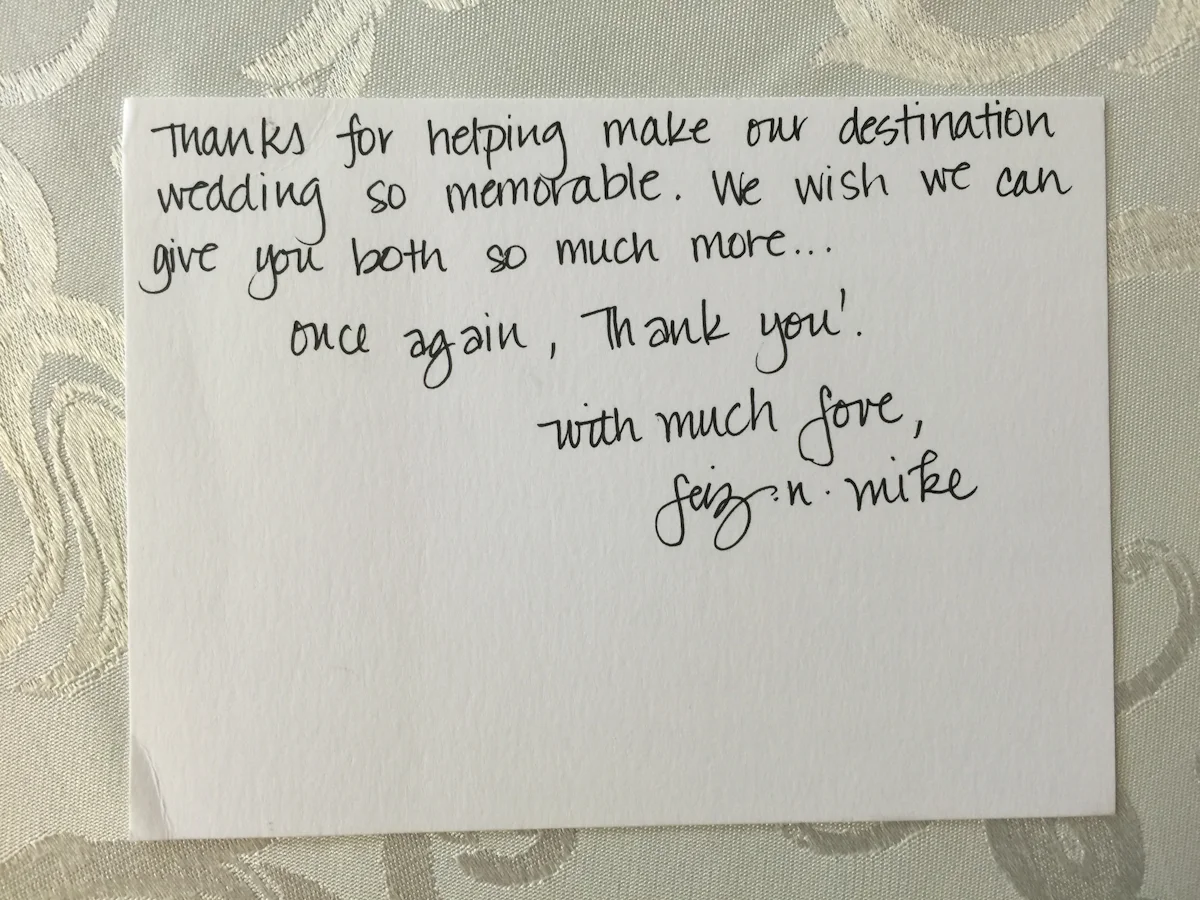 Thanks for helping make our destination
wedding so memorable. We wish we can
give you both so much more...
once again, Thank you!
with much love,
n. mike